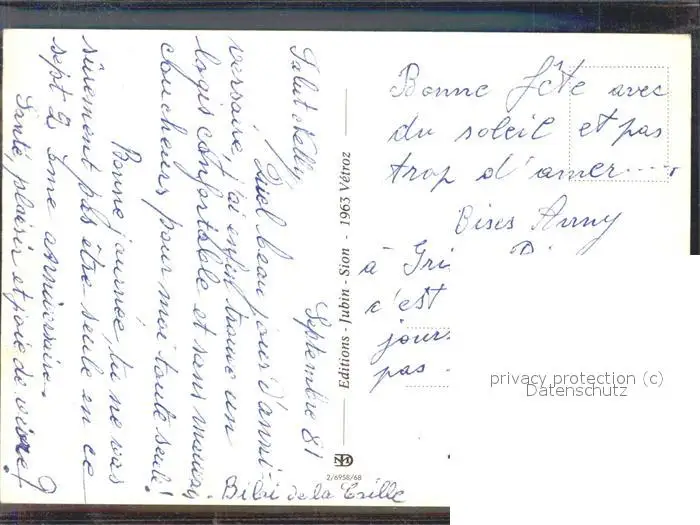 Septembre 81
Salut Nelly,
Quel beau jour d'anni-
versaire, j'ai enfin trouvé un
logis confortable et sans mauvais
coucheurs pour moi toute seule!
Bonne journée, tu ne vas
sûrement pas être seule en ce
sept 2 ème anniversaire.
Santé, plaisir et joie de vivre!
Bibi de la
Editions - Jubin - Sion - 1963 Vétroz
2/6958/68
Bonne fête avec
du soleil et pas
trop d'amer....
Bises Anny
à Gri
c'est
jours
pas
privacy protection (c)
Datenschutz